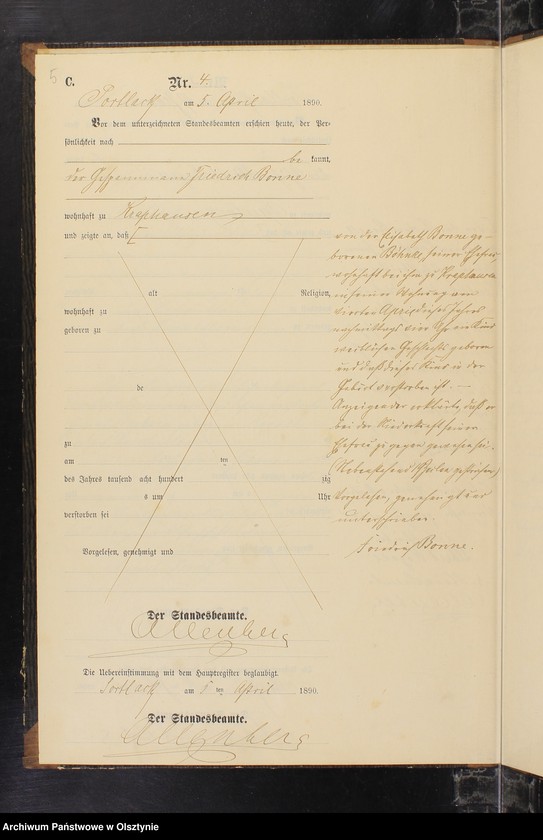 5
C.
Nr. 4.
Portlack am 5. April 1890.
Vor dem unterzeichneten Standesbeamten erschien heute, der Per-
sönlichkeit nach
be kannt,
der Friedrich Bonne
wohnhaft zu
und zeigte an, daß
alt Religion,
wohnhaft zu
geboren zu
de
zu
am ten
des Jahres tausend acht hundert zig
s um Uhr
verstorben sei
Vorgelesen, genehmigt und
von der Elisabeth Bonne ge-
borenen Böhnes, seiner Ehefrau,
wohnhaft bei ihm zu
in seiner Wohnung am
vierten April dieses Jahres
nachmittags vier Uhr ein Kind
weiblichen Geschlechts geboren
und daß dieses Kind in der
Geburt verstorben ist. —
Anzeigender erklärte, daß er
bei der Niederkunft seiner
Ehefrau zu gegen gewesen sei.
(Nebenstehend gestrichen)
Vorgelesen, genehmigt und
unterschrieben.
Friedrich Bonne.
Der Standesbeamte.
Allenberg
Die Uebereinstimmung mit dem Hauptregister beglaubigt.
Portlack am 5 ten April 1890.
Der Standesbeamte.
Allenberg
Archiwum Państwowe w Olsztynie